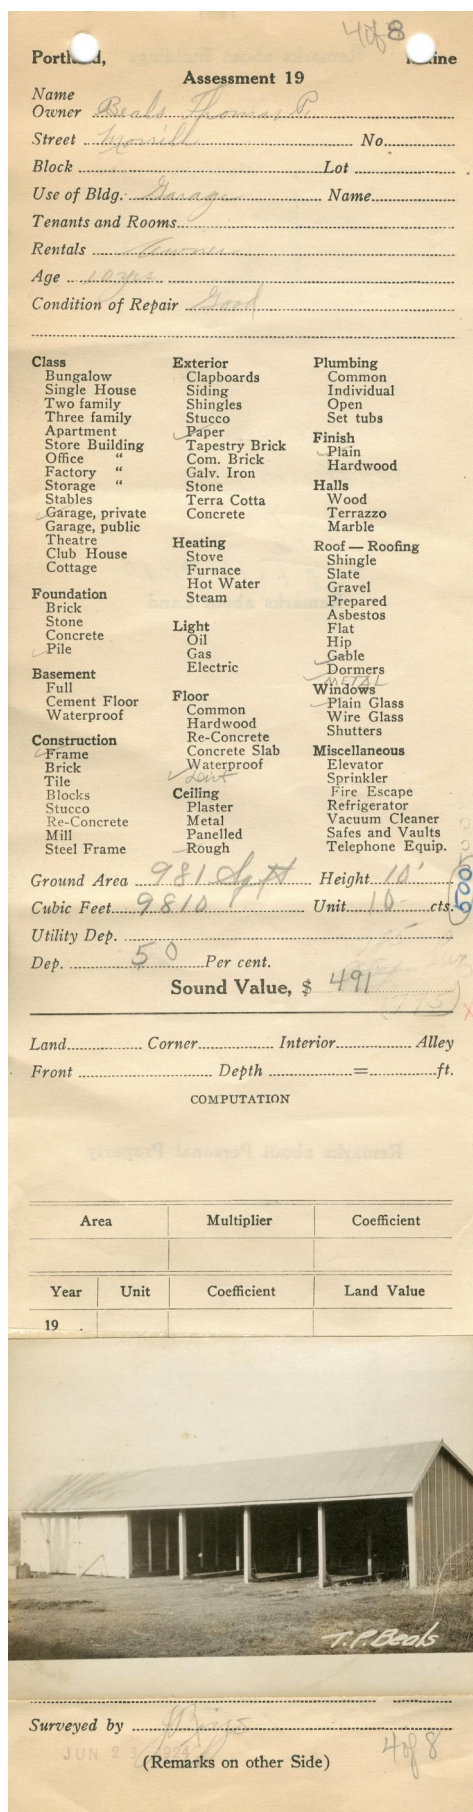 4 of 8
Portland, Maine
Assessment 19
Name
Owner Beals Thomas P.
Street Morrill No.
Block Lot
Use of Bldg. Garage Name
Tenants and Rooms
Rentals Owner
Age 10 yrs
Condition of Repair Good
Class
Bungalow
Single House
Two family
Three family
Apartment
Store Building
Office "
Factory "
Storage "
Stables
Garage, private
Garage, public
Theatre
Club House
Cottage
Foundation
Brick
Stone
Concrete
Pile
Basement
Full
Cement Floor
Waterproof
Construction
Frame
Brick
Tile
Blocks
Stucco
Re-Concrete
Mill
Steel Frame
Exterior
Clapboards
Siding
Shingles
Stucco
Paper
Tapestry Brick
Com. Brick
Galv. Iron
Stone
Terra Cotta
Concrete
Heating
Stove
Furnace
Hot Water
Steam
Light
Oil
Gas
Electric
Floor
Common
Hardwood
Re-Concrete
Concrete Slab
Waterproof
Dirt
Ceiling
Plaster
Metal
Panelled
Rough
Plumbing
Common
Individual
Open
Set tubs
Finish
Plain
Hardwood
Halls
Wood
Terrazzo
Marble
Roof — Roofing
Shingle
Slate
Gravel
Prepared
Asbestos
Flat
Hip
Gable
Dormers
METAL
Windows
Plain Glass
Wire Glass
Shutters
Miscellaneous
Elevator
Sprinkler
Fire Escape
Refrigerator
Vacuum Cleaner
Safes and Vaults
Telephone Equip.
Ground Area 981 Sq ft Height 10'
Cubic Feet 9810 Unit 10 cts.
500
Utility Dep.
Dep. 50 Per cent.
Sound Value, $ 491
(775) x
Land Corner Interior Alley
Front Depth = ft.
COMPUTATION
Area Multiplier Coefficient
Year Unit Coefficient Land Value
19 .
T.P. Beals
Surveyed by
JUN 23 1924
4 of 8
(Remarks on other Side)